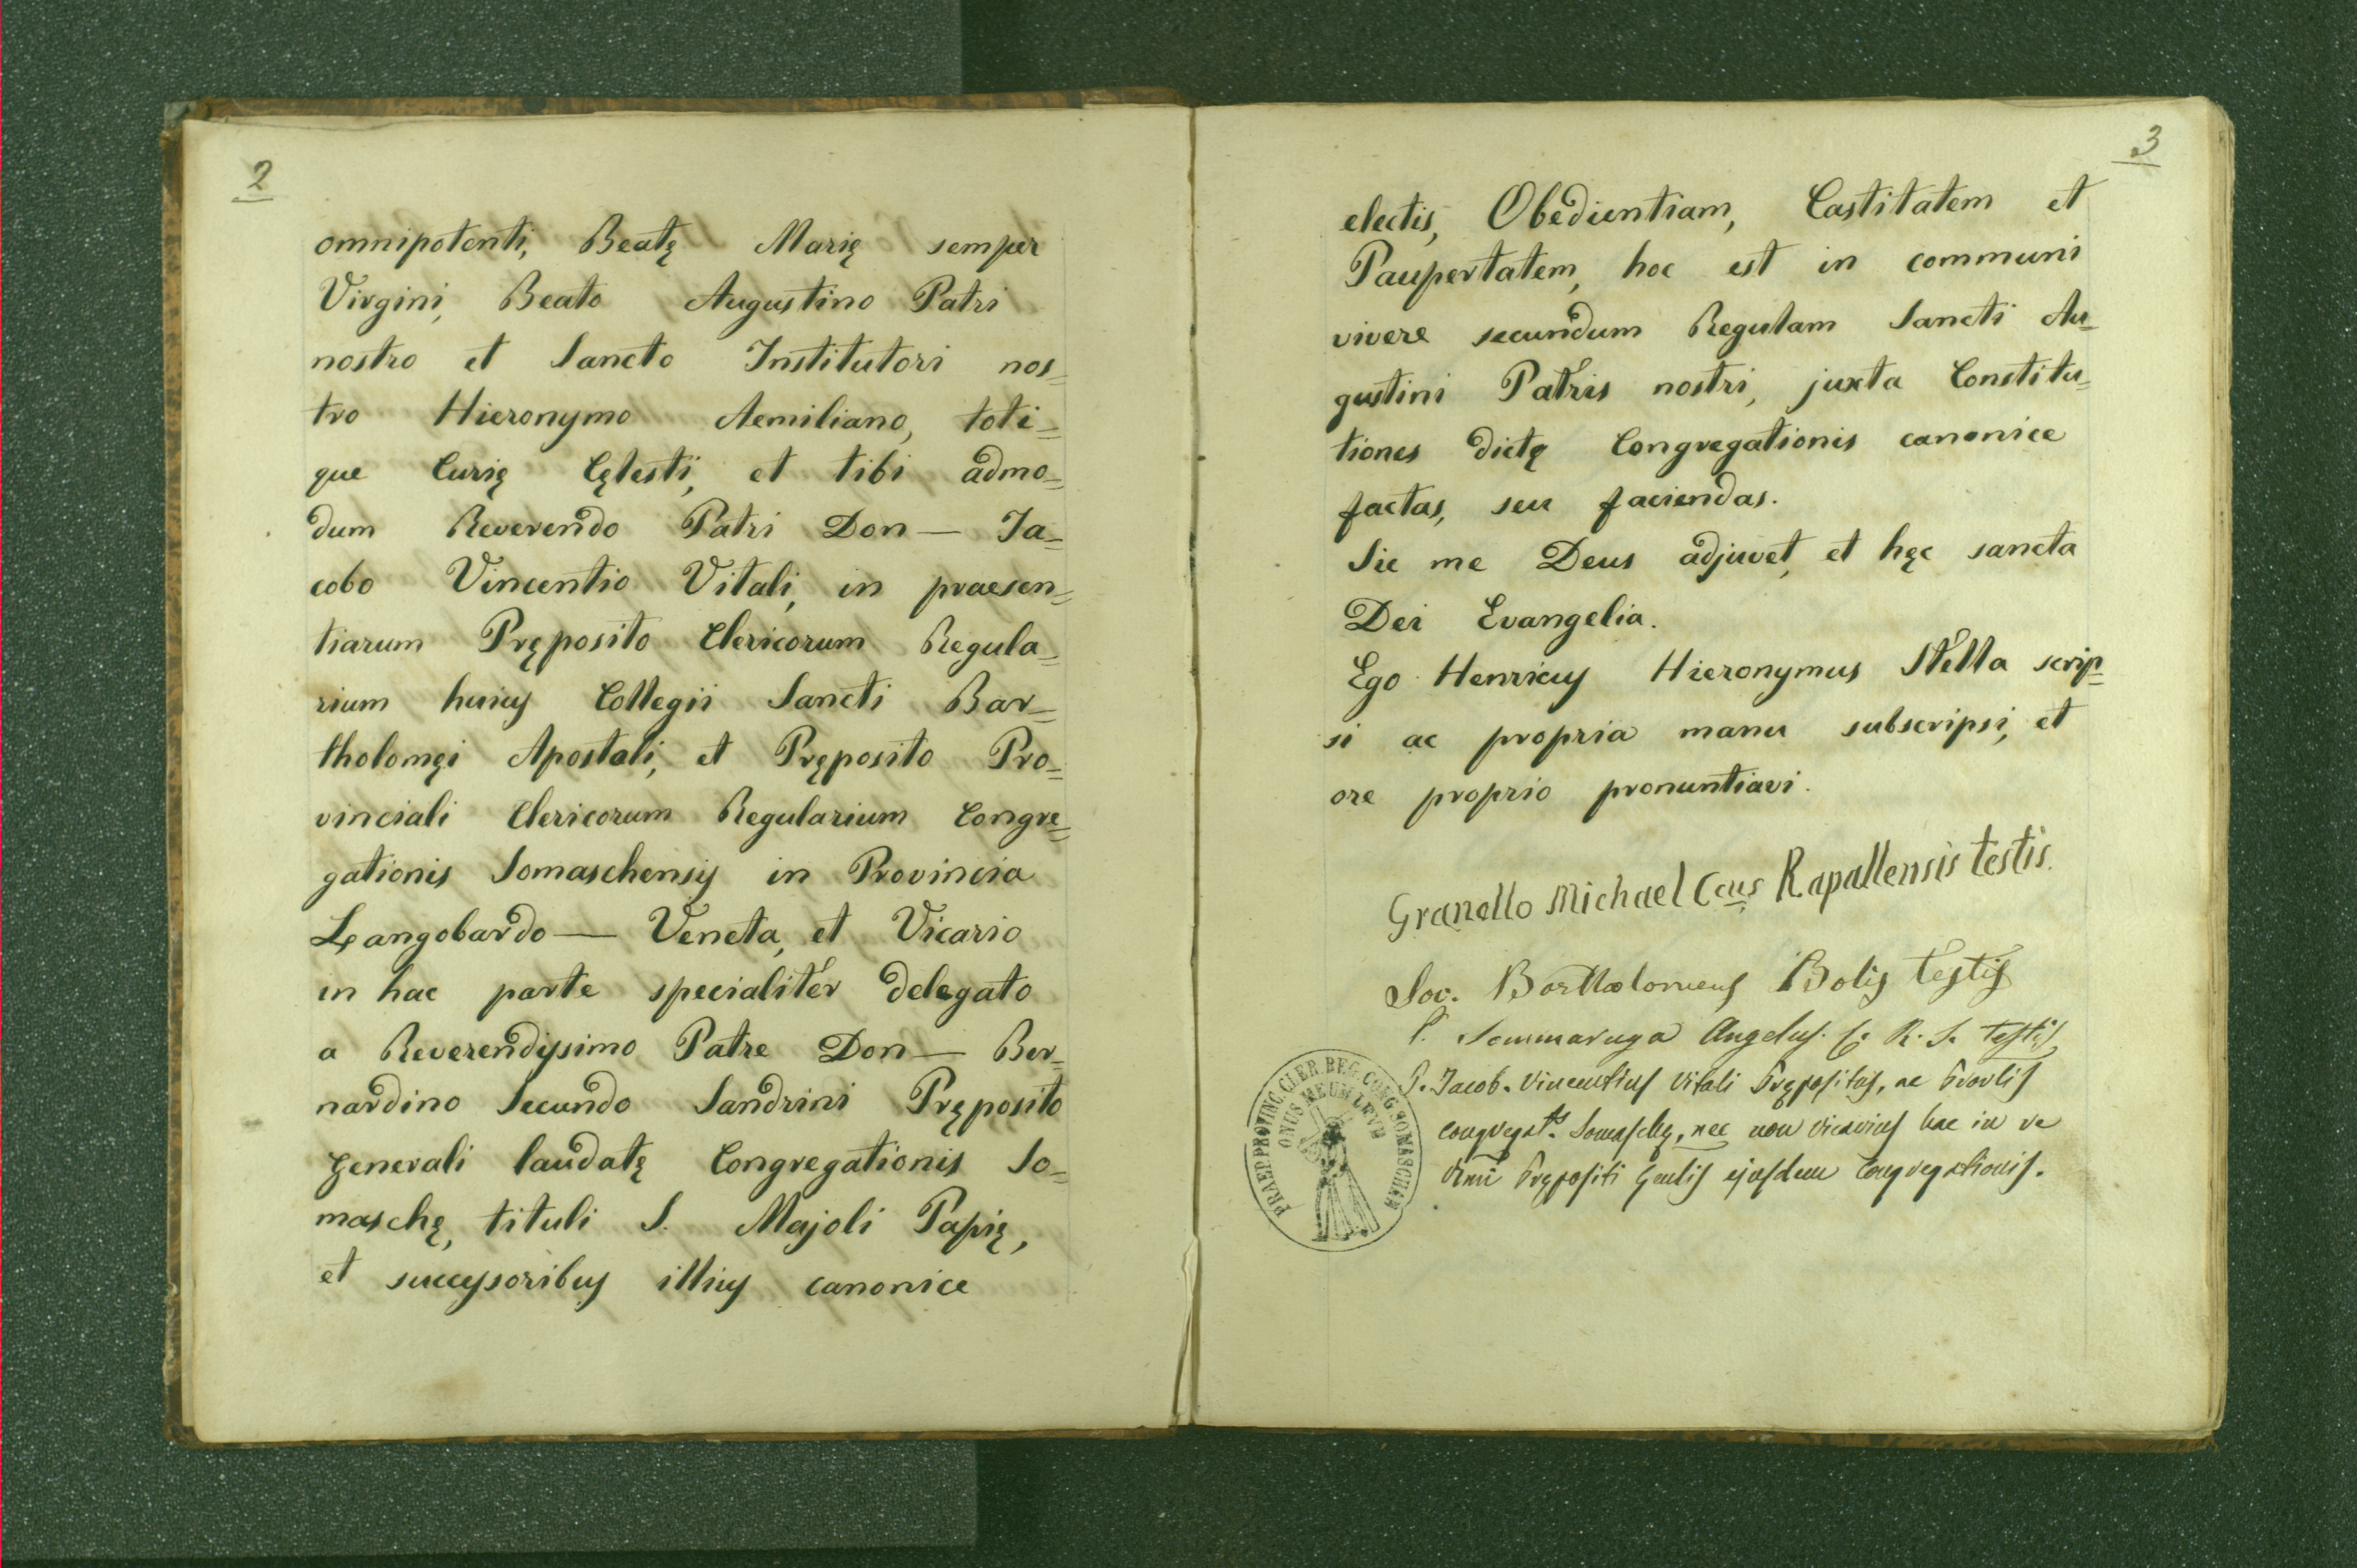 2
omnipotenti, Beatę Marię semper
Virgini, Beato Augustino Patri
nostro et Sancto Institutori nos=
tro Hieronymo Aemiliano, toti=
que Curię Cęlesti, et tibi admo=
dum Reverendo Patri Don— Ja=
cobo Vincentio Vitali, in praesen=
tiarum Pręposito Clericorum Regula=
rium hujus Collegii Sancti Bar=
tholomęi Apostoli, et Pręposito Pro=
vinciali Clericorum Regularium Congre=
gationis Somaschensis in Provincia
Langobardo— Veneta, et Vicario
in hac parte specialiter delegato
a Reverendissimo Patre Don— Ber=
nardino Secundo Sandrini Pręposito
Generali laudatę Congregationis So=
maschę, tituli S. Majoli Papię,
et successoribus illius canonice
3
electis, Obedientiam, Castitatem et
Paupertatem, hoc est in communi
vivere secundum Regulam Sancti Au=
gustini Patris nostri, juxta Constitu=
tiones dictę Congregationis canonice
factas, seu faciendas.
Sic me Deus adjuvet, et hęc sancta
Dei Evangelia.
Ego Henricus Hieronymus Stella scrip=
si ac propria manu subscripsi, et
ore proprio pronuntiavi.
Granello Michael Ccus Rapallensis testis.
Soc. Bartholomeus Bolis testis
P. Sommaruga Angelus. C. R. S. testis
P. Jacob. Vincentius Vitali Prępositus, ac Provlis
Congregat.is Somaschę, nec non vicarius hac in re
Rmi Prępositi Gnlis ejusdem Congregationis.
PRAEP. PROVINC. CLER. REG. CONG. SOMASCHAE
ONUS MEUM LEVE